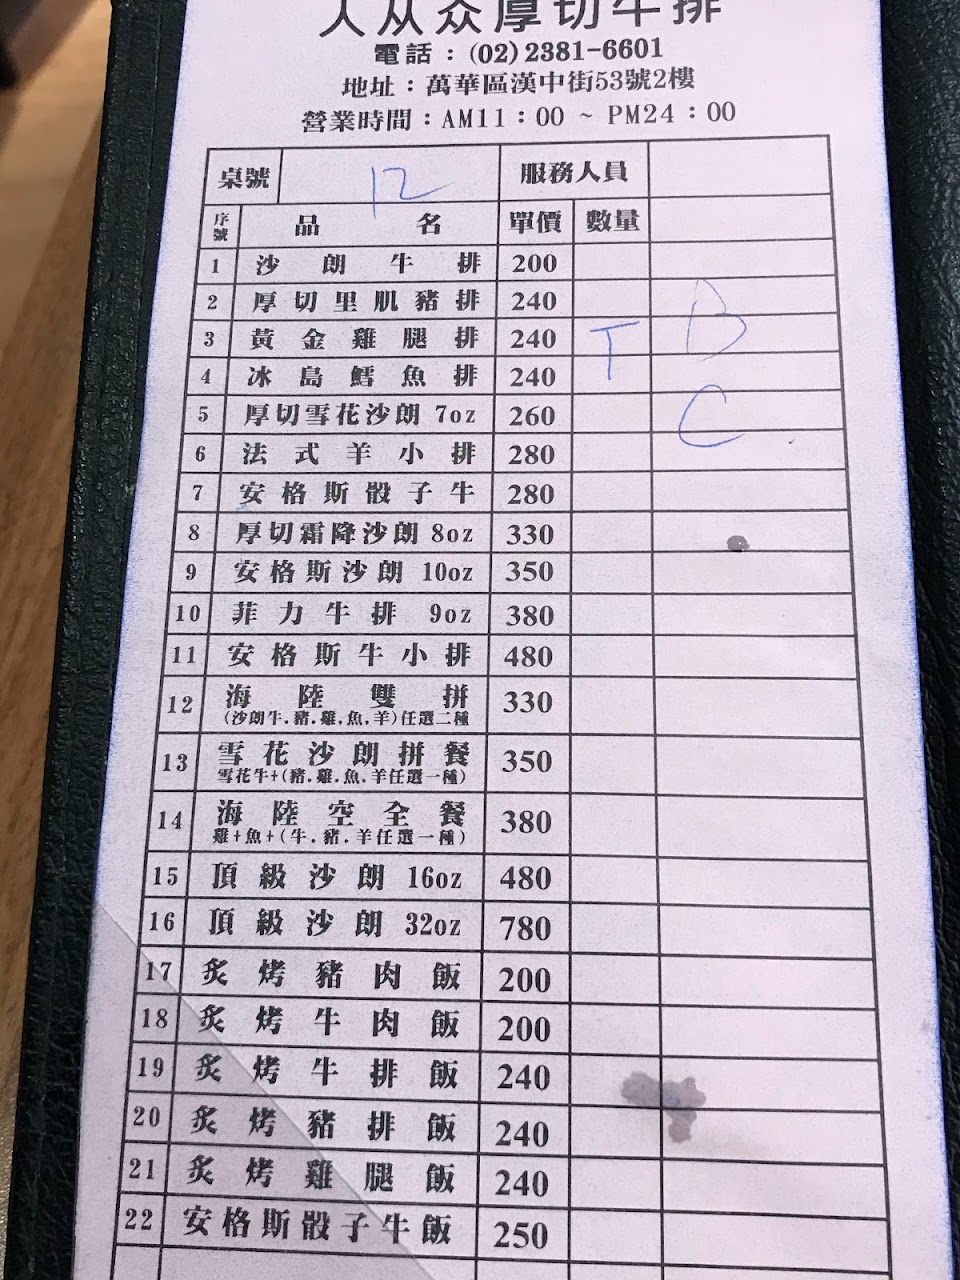 人从众厚切牛排
電話：(02)2381-6601
地址：萬華區漢中街53號2樓
營業時間：AM11：00 ~ PM24：00
桌號 12 服務人員
序號 品名 單價 數量
1 沙朗牛排 200
2 厚切里肌豬排 240 B
3 黃金雞腿排 240 T
4 冰島鱈魚排 240
5 厚切雪花沙朗 7oz 260 C
6 法式羊小排 280
7 安格斯骰子牛 280
8 厚切霜降沙朗 8oz 330
9 安格斯沙朗 10oz 350
10 菲力牛排 9oz 380
11 安格斯牛小排 480
12 海陸雙拼 330
(沙朗牛.豬.雞,魚,羊)任選二種
13 雪花沙朗拼餐 350
雪花牛+(豬.雞.魚.羊任選一種)
14 海陸空全餐 380
雞+魚+(牛.豬.羊任選一種)
15 頂級沙朗 16oz 480
16 頂級沙朗 32oz 780
17 炙烤豬肉飯 200
18 炙烤牛肉飯 200
19 炙烤牛排飯 240
20 炙烤豬排飯 240
21 炙烤雞腿飯 240
22 安格斯骰子牛飯 250